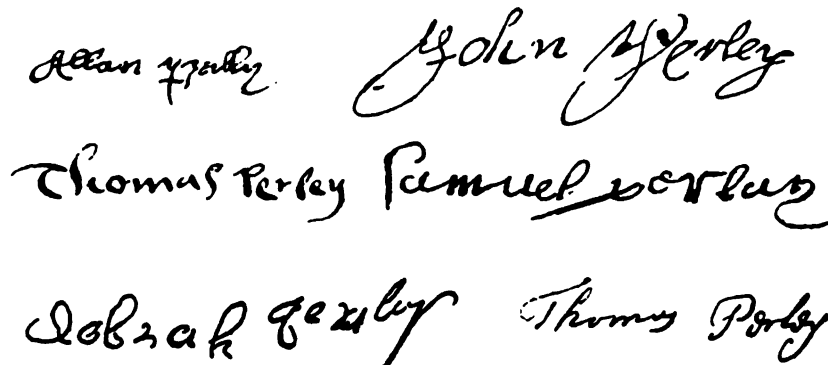 Allan perlly John Perley
Thomas Perley Samuel perlay
debrah perley Thomas Perley